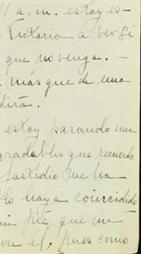 11 a.m. estoy es-
Victoria a ver si
que no venga. —
más que de una
dirá.
estoy pasando una
gradables que recuerdo
fastidio me ha
lo haya coincidido
fité, que un
con el, pues como